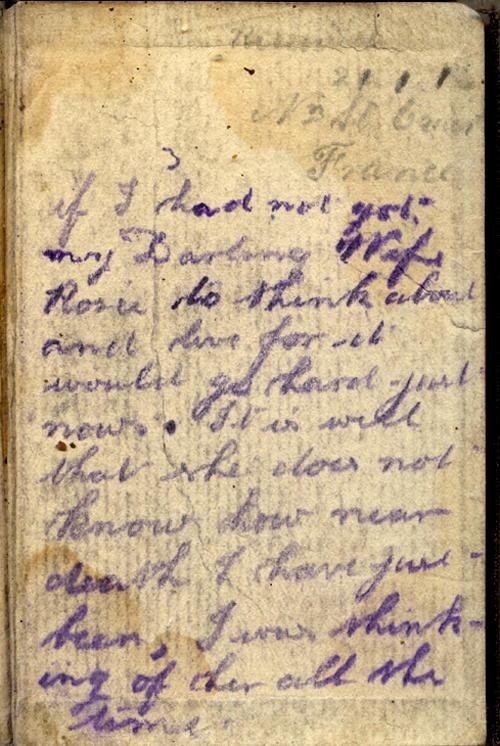 21 1 1
France
if I had not got
my Darling Wife
Rosie to think about
and live for it
would go hard just
now. It is well
that she does not
know how near
death I have just
been, I was think-
ing of her all the
time.